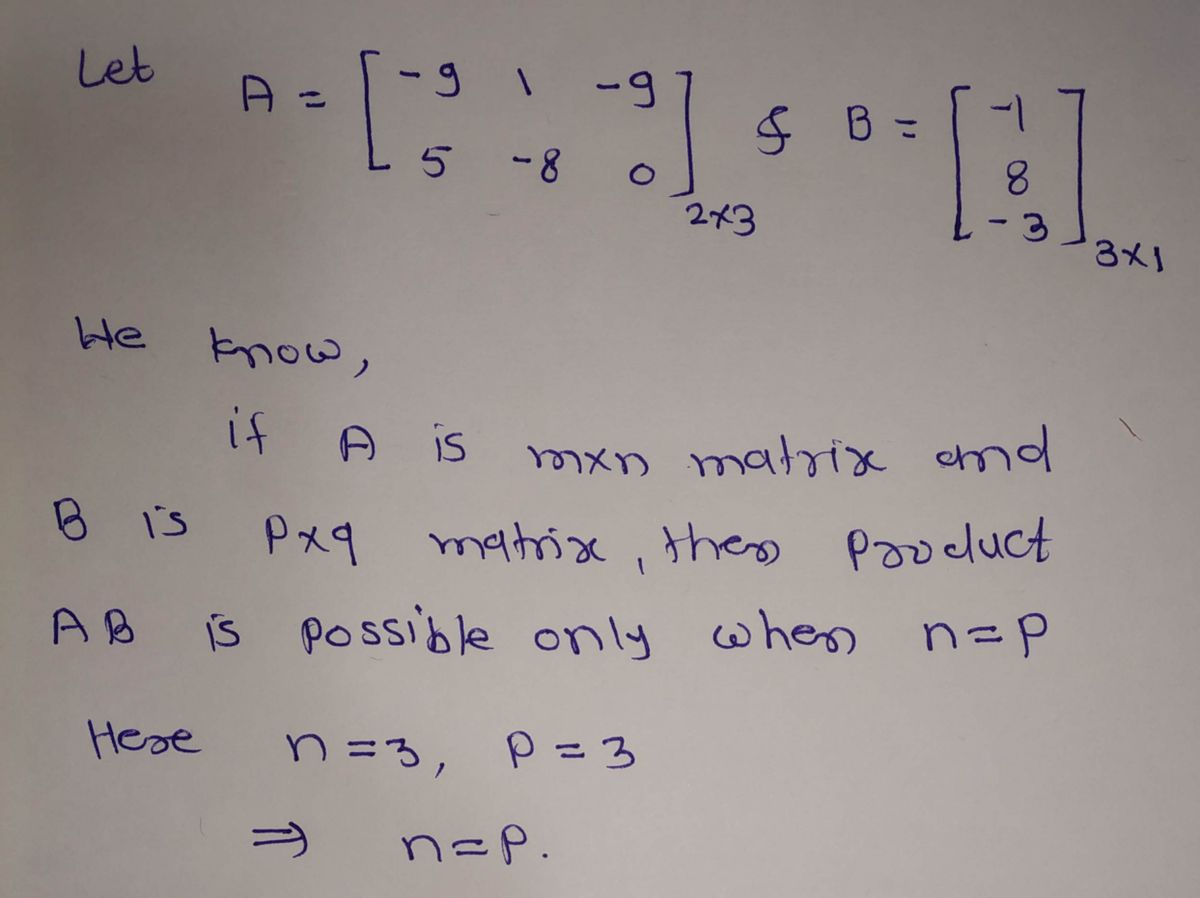 Let A = [ -9 1 -9 ; 5 -8 0 ]2×3 & B = [ -1 ; 8 ; -3 ]3×1
We know,
if A is m×n matrix and
B is p×q matrix, then product
AB is possible only when n=p
Here n=3, p=3
⇒ n=p.